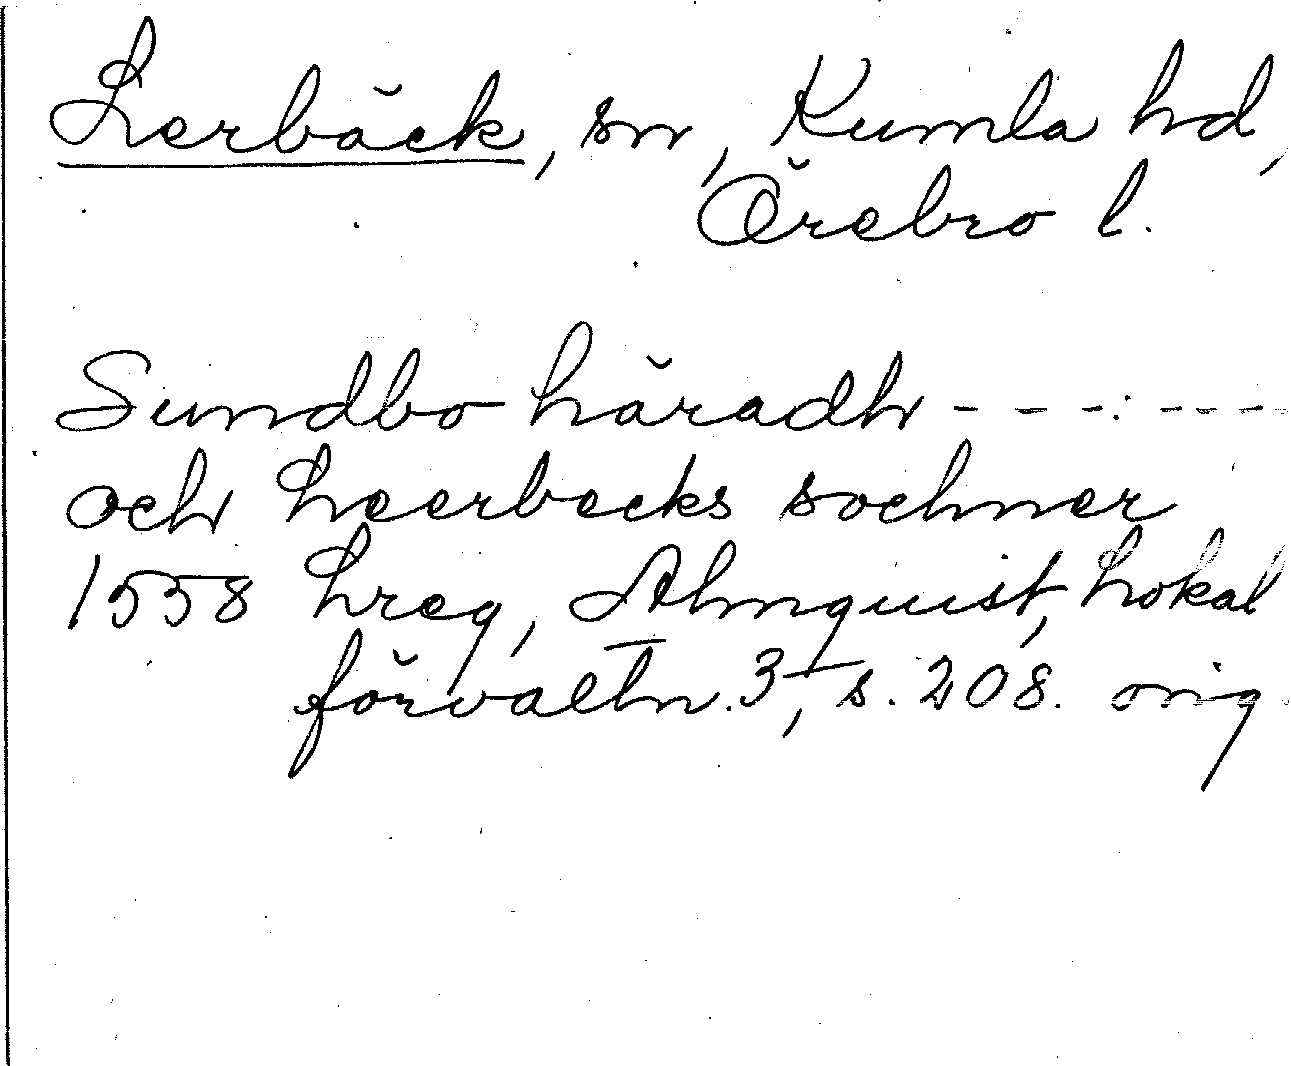 Lerbäck, sn, Kumla hd,
Örebro l.
Sundbo häradh - - -:- - - -
och Leerbecks sochner
1558 Lreg, Almquist, Lokal
förvaltn. 3, s. 208. orig.